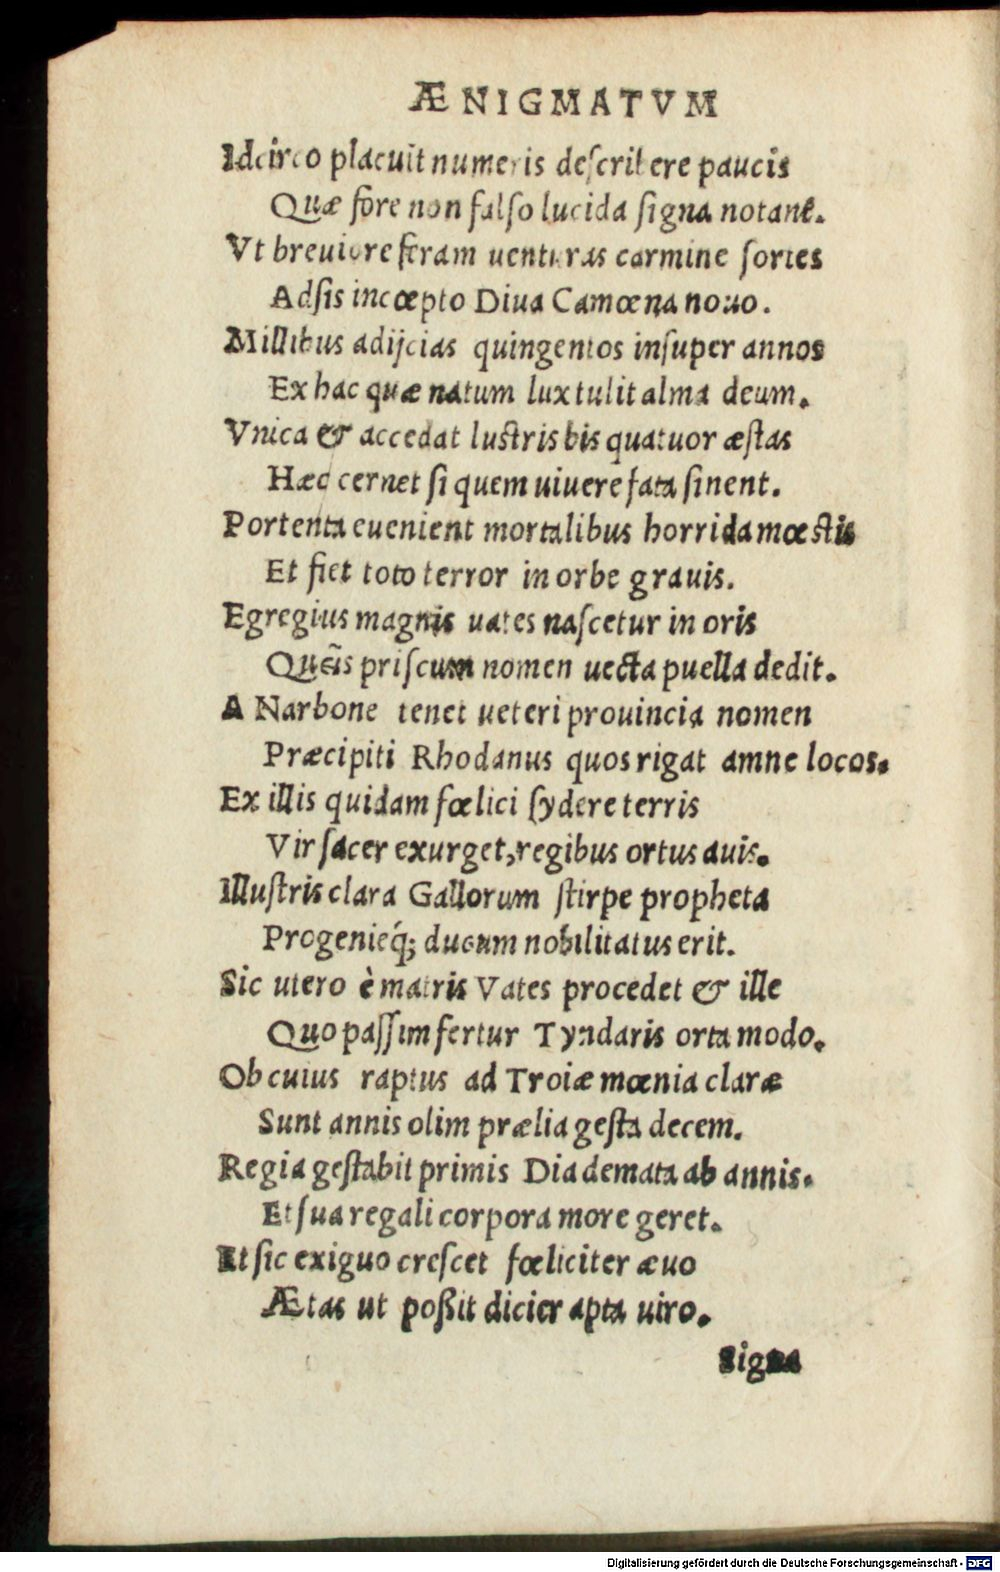 ÆNIGMATVM
Idcirco placuit numeris describere paucis
Quæ fore non falso lucida signa notant.
Vt breuiore feram uenturas carmine sortes
Adsis incœpto Diua Camœna nouo.
Millibus adijcias quingentos insuper annos
Ex hac quæ natum lux tulit alma deum.
Vnica & accedat lustris bis quatuor æstas
Hæc cernet si quem uiuere fata sinent.
Portenta euenient mortalibus horrida mœstis
Et fiet toto terror in orbe grauis.
Egregius magnis uates nascetur in oris
Queis priscum nomen uecta puella dedit.
A Narbone tenet ueteri prouincia nomen
Præcipiti Rhodanus quos rigat amne locos.
Ex illis quidam fœlici sydere terris
Vir sacer exurget, regibus ortus auis.
Illustris clara Gallorum stirpe propheta
Progenieq́; ducum nobilitatus erit.
Sic utero è matris Vates procedet & ille
Quo passim fertur Tyndaris orta modo.
Ob cuius raptus ad Troiæ mœnia claræ
Sunt annis olim prælia gesta decem.
Regia gestabit primis Diademata ab annis.
Et sua regali corpora more geret.
Et sic exiguo crescet fœliciter æuo
Ætas ut poßit dicier apta uiro.
Signa
Digitalisierung gefördert durch die Deutsche Forschungsgemeinschaft - DFG